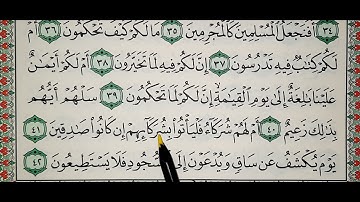 ٣٤ أَفَنَجْعَلُ ٱلْمُسْلِمِينَ كَٱلْمُجْرِمِينَ ٣٥ مَا لَكُمْ كَيْفَ تَحْكُمُونَ ٣٦ أَمْ
لَكُمْ كِتَٰبٌ فِيهِ تَدْرُسُونَ ٣٧ إِنَّ لَكُمْ فِيهِ لَمَا تَخَيَّرُونَ ٣٨ أَمْ لَكُمْ أَيْمَٰنٌ
عَلَيْنَا بَٰلِغَةٌ إِلَىٰ يَوْمِ ٱلْقِيَٰمَةِ إِنَّ لَكُمْ لَمَا تَحْكُمُونَ ٣٩ سَلْهُمْ أَيُّهُم
بِذَٰلِكَ زَعِيمٌ ٤٠ أَمْ لَهُمْ شُرَكَآءُ فَلْيَأْتُوا۟ بِشُرَكَآئِهِمْ إِن كَانُوا۟ صَٰدِقِينَ ٤١
يَوْمَ يُكْشَفُ عَن سَاقٍ وَيُدْعَوْنَ إِلَى ٱلسُّجُودِ فَلَا يَسْتَطِيعُونَ ٤٢